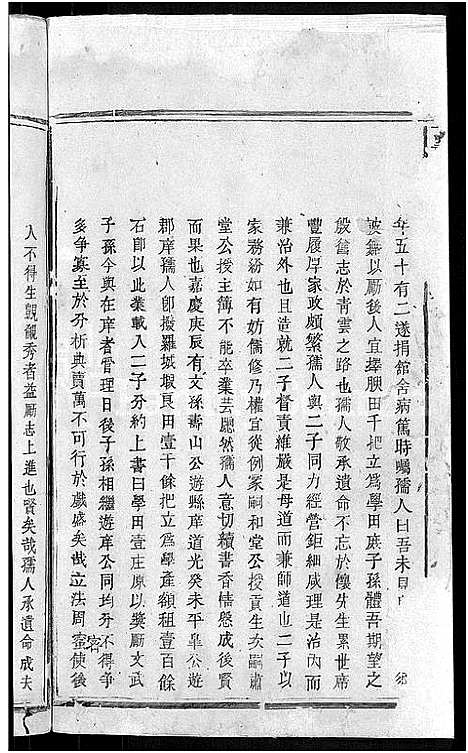 年五十有二遂捐館舍病篤時囑孺人曰吾未
故無以勵後人宜擇腴田千把立為學田庶子孫體吾期望之
殷舊志於青雲之路也孺人敬承遺命不忘於懷先生累世席
豐履厚家政頗繁孺人與二子同力經營鉅細咸理是治內而
兼治外也且造就二子督責維嚴是母道而兼師道也二子以
家務紛如有妨儒修乃權宜從例冢嗣和堂公授貢生次嗣肅
堂公授主簿不能卒業芸窻然孺人意切續書香情慇成後賢
而果也嘉慶庚辰有文孫壽山公遊縣庠道光癸未平臯公遊
郡庠孺人卽撥羅城塅良田壹千餘把立為學產額租壹百餘
石卽以此業載入二子分約上書曰學田壹庄原以獎勵文武
子孫今與在庠者管理日後子孫相繼遊庠公同均分不得爭
多爭寡至於分析典賣萬不可行於戲盛矣哉立法周密使後
人不得生覬覦秀者益勵志上進也賢矣哉孺人承遺命成夫